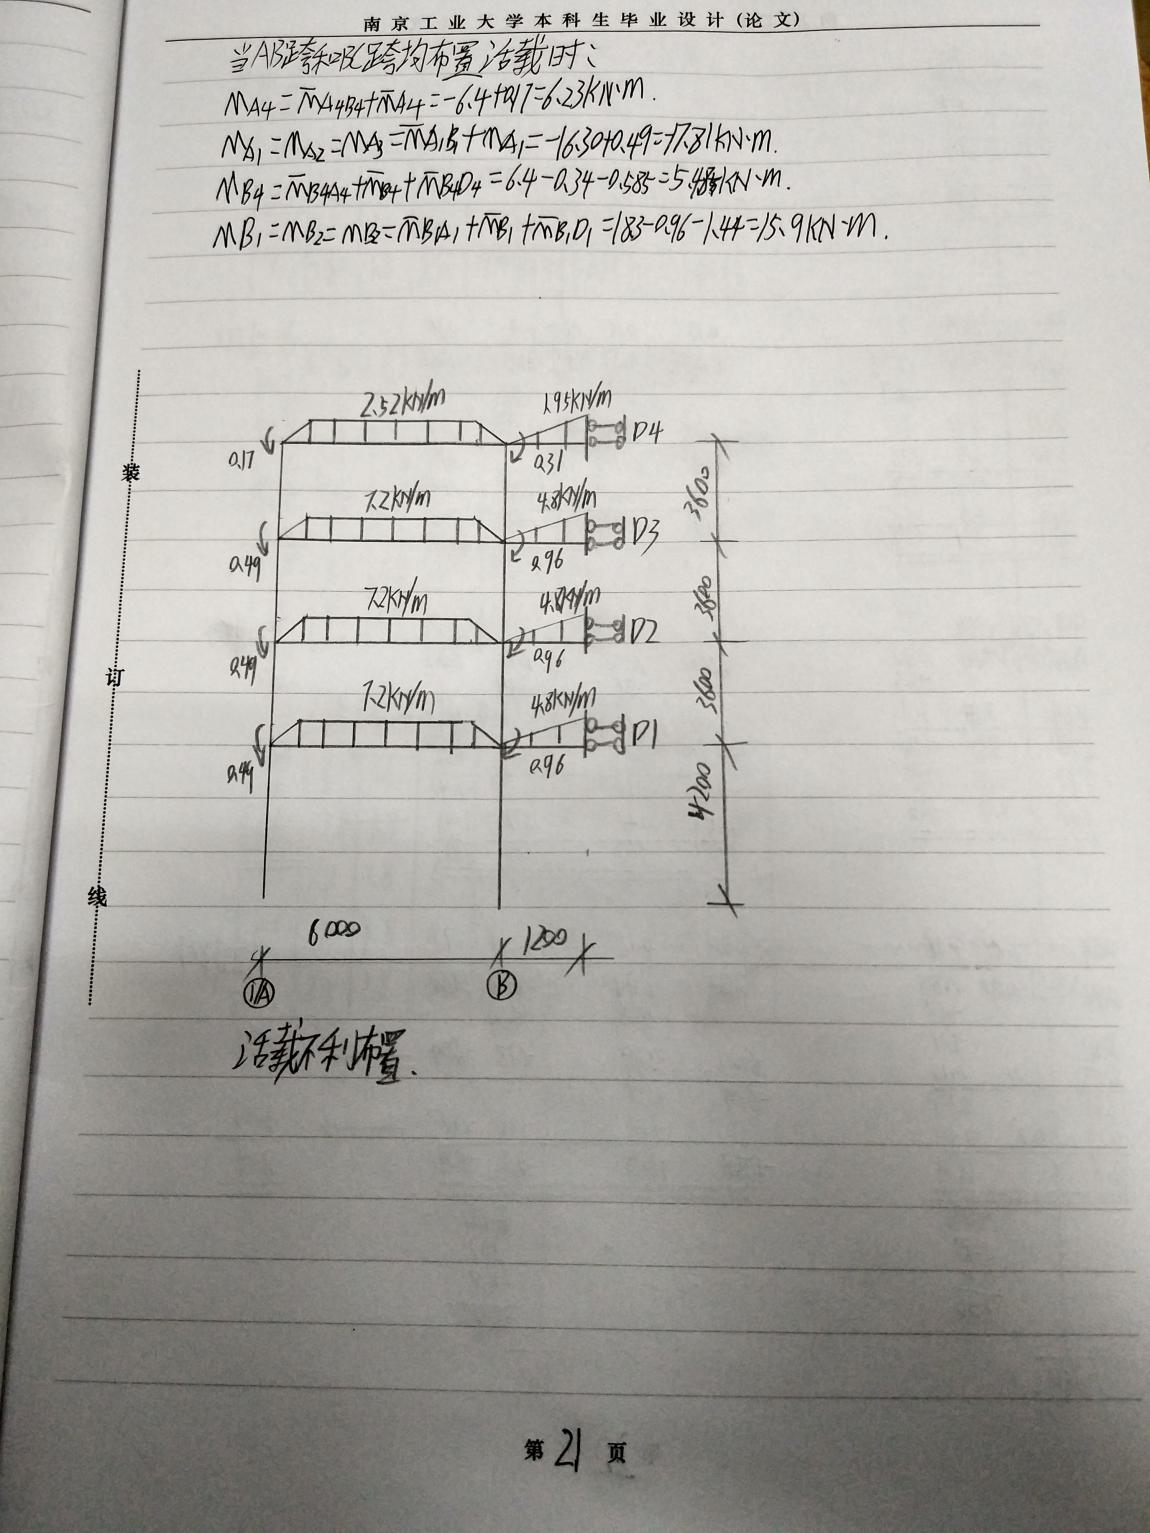 南京工业大学本科生毕业设计(论文)
当AB跨和BC跨均布置活载时:
MA4=M̄A4B4+M̄A4=-6.4+0.17=6.23KN·m.
MA1=MA2=MA3=M̄A1B1+MA1=-16.30+0.49=-17.81KN·m.
MB4=M̄B4A4+M̄B4+M̄B4D4=6.4-0.34-0.585=5.48KN·m.
MB1=MB2=MB3=M̄B1A1+M̄B1+M̄B1D1=183-0.96-1.44=15.9KN·m.
2.52KN/m 1.95KN/m
D4
0.17 0.31
3600
7.2KN/m 4.8KN/m
D3
0.49 0.96
3600
7.2KN/m 4.8KN/m
D2
0.49 0.96
3600
7.2KN/m 4.8KN/m
D1
0.49 0.96
4200
6000 1200
1/A B
活载不利布置.
装
订
线
第21页